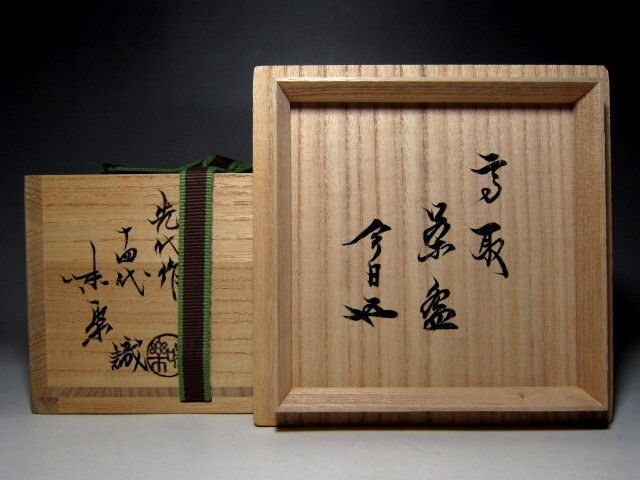 高取
茶盌
今日庵
先代作
十四代
味楽
識